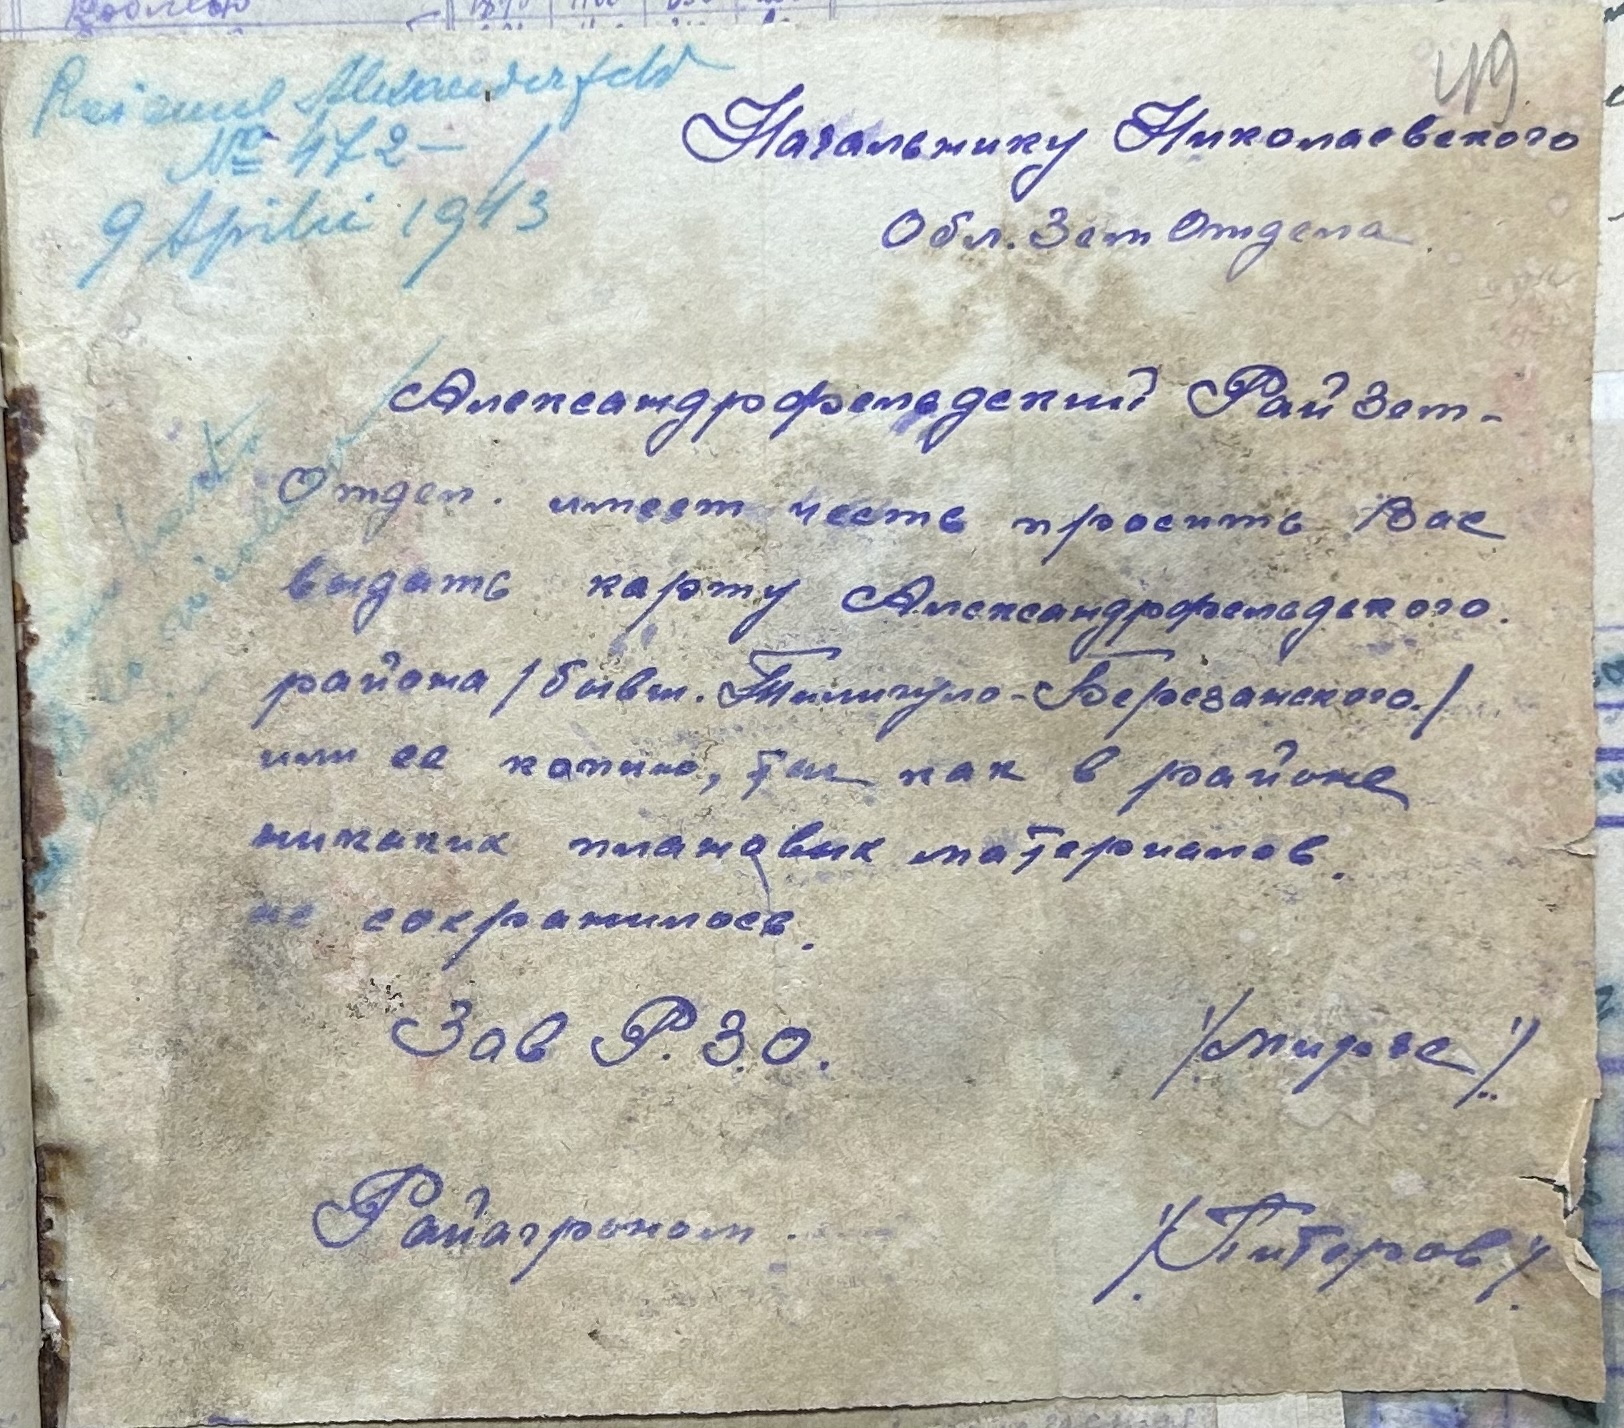 Raionul Alexanderfeld
№ 472 —
9 Aprilie 1943
49
Начальнику Николаевского
Обл. Зем Отдела.
Александрофельдский РайЗем-
Отдел. имеет честь просить Вас
выдать карту Александрофельдского.
района /бывш. Тилигуло-Березанского./
или ее копию, так как в районе
никаких плановых материалов.
не сохранилось.
Зав Р.З.О.
Райагроном.
/Питеров/